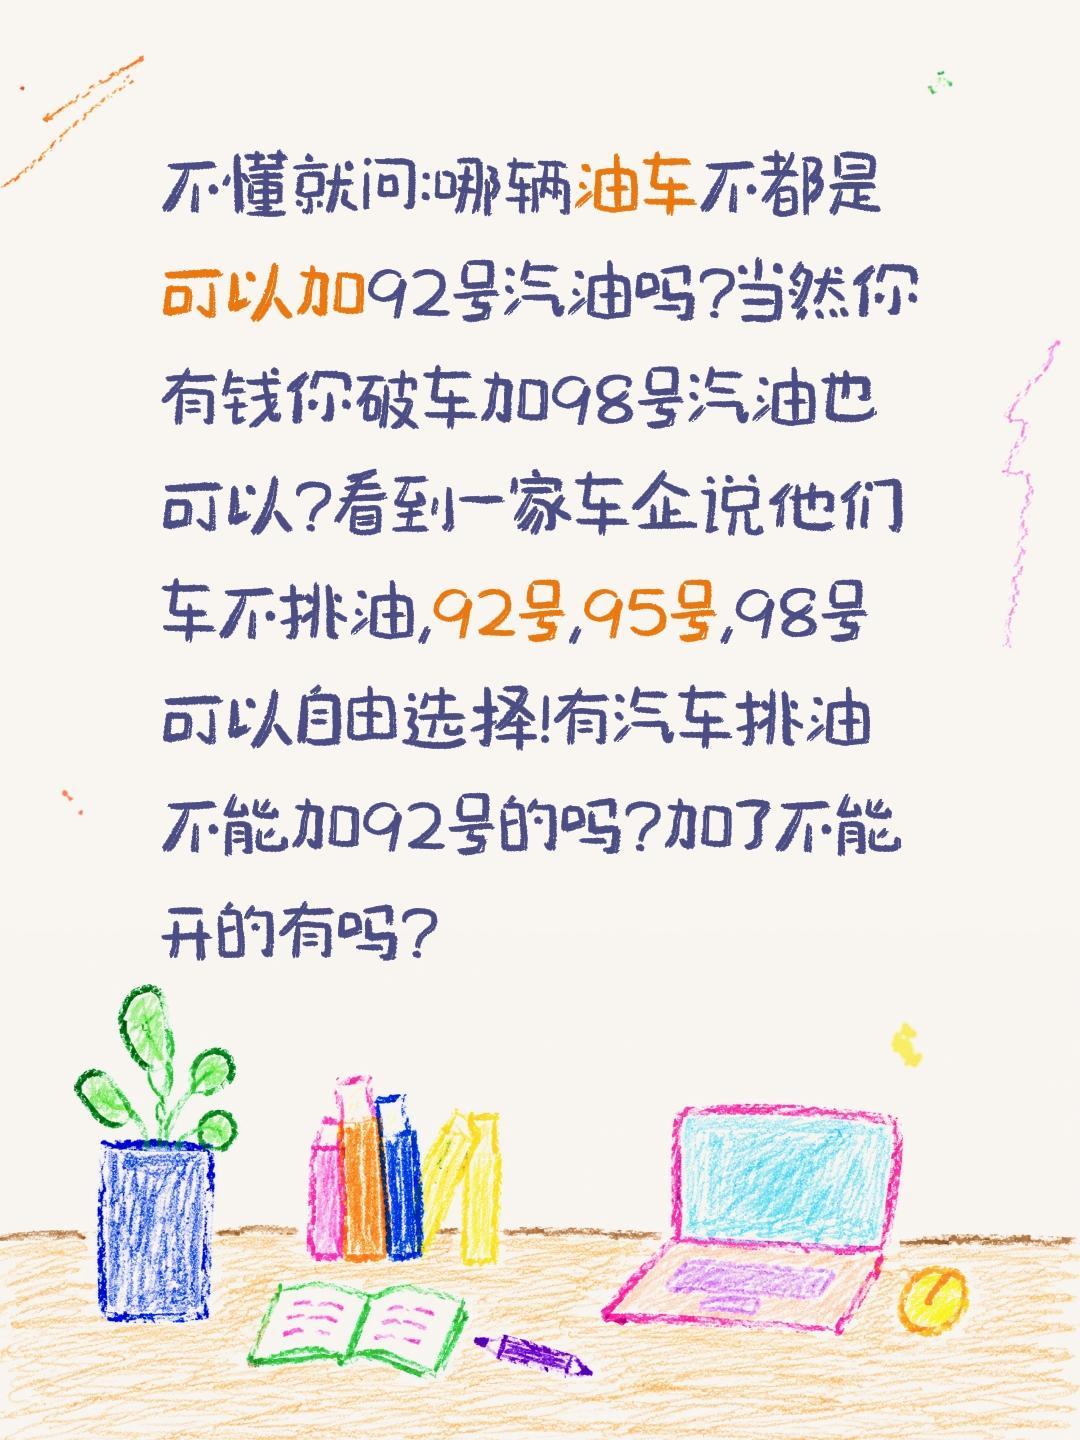 不懂就问:哪辆油车不都是
可以加92号汽油吗?当然你
有钱你破车加98号汽油也
可以?看到一家车企说他们
车不排油,92号,95号,98号
可以自由选择!有汽车排油
不能加92号的吗?加了不能
开的有吗?